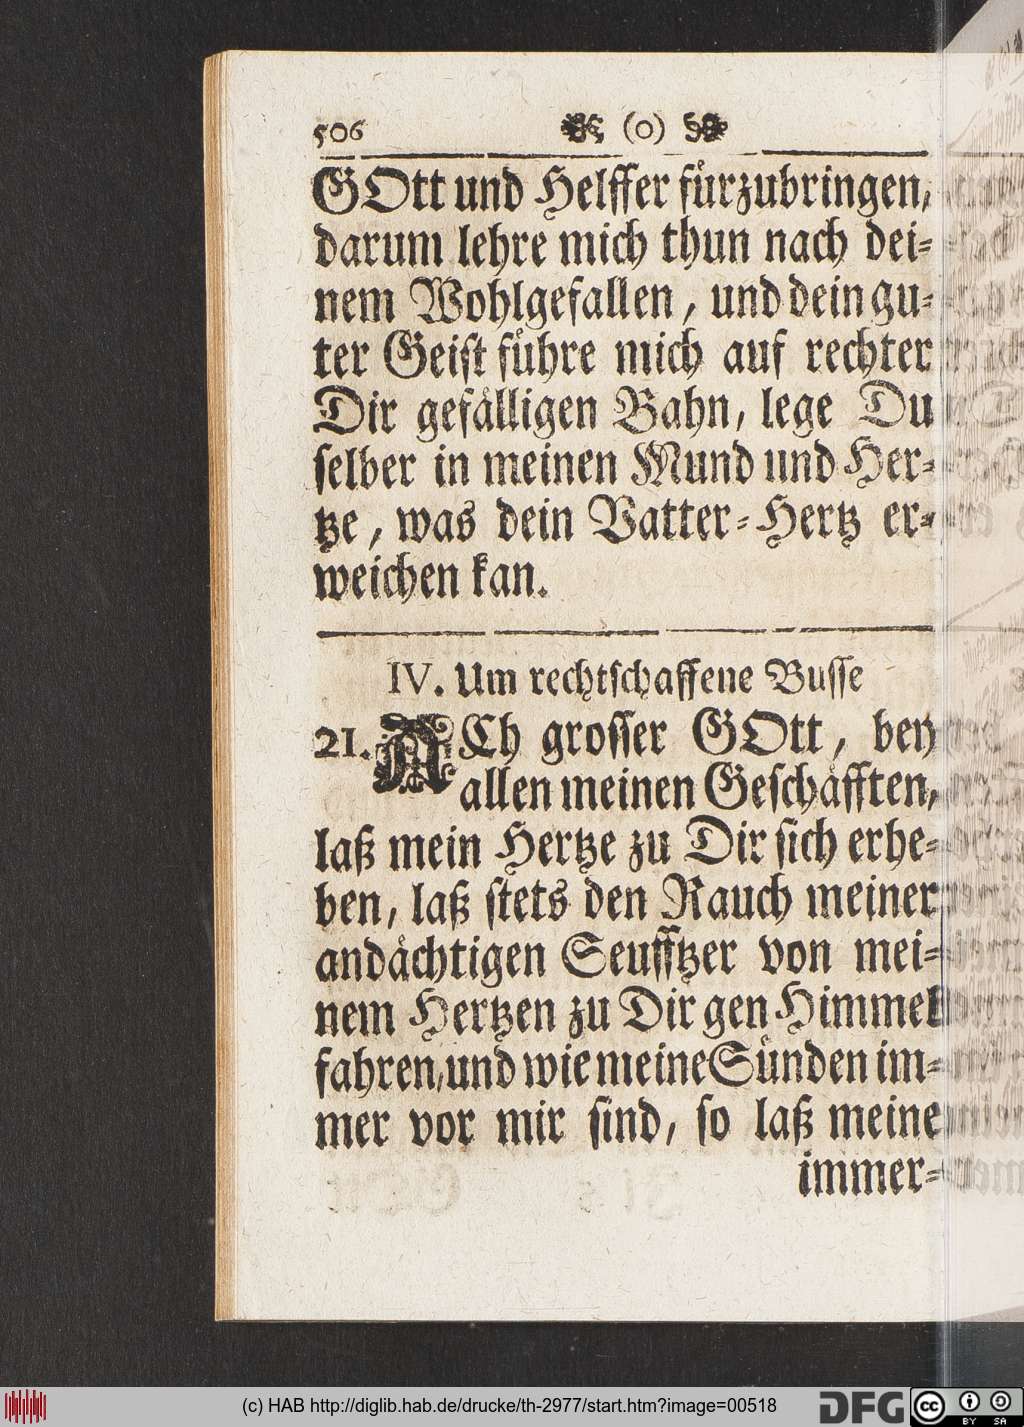 506 (0)
GOtt und Helffer fürzubringen,
darum lehre mich thun nach dei-
nem Wohlgefallen, und dein gu-
ter Geist führe mich auf rechter
Dir gefälligen Bahn, lege Du
selber in meinen Mund und Her-
tze, was dein Vatter-Hertz er-
weichen kan.
IV. Um rechtschaffene Busse
21. ACh grosser GOtt, bey
allen meinen Geschäfften,
laß mein Hertze zu Dir sich erhe-
ben, laß stets den Rauch meiner
andächtigen Seufftzer von mei-
nem Hertzen zu Dir gen Himmel
fahren, und wie meine Sünden im-
mer vor mir sind, so laß meine
immer-
(c) HAB http://diglib.hab.de/drucke/th-2977/start.htm?image=00518
DFG
cc BY SA